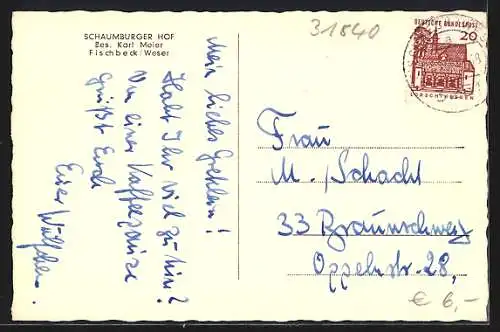 SCHAUMBURGER HOF
Bes. Karl Meier
Fischbeck/Weser
31840
DEUTSCHE BUNDESPOST
20
LORSCH/HESSEN
Mein liebes Gretelein!
Habt Ihr viel zu tun?
Von einer Kaffeepause
grüßt Euch
Euer
Frau
M. Schacht
33 Braunschweig
Oppelnstr. 28,
€ 6,-